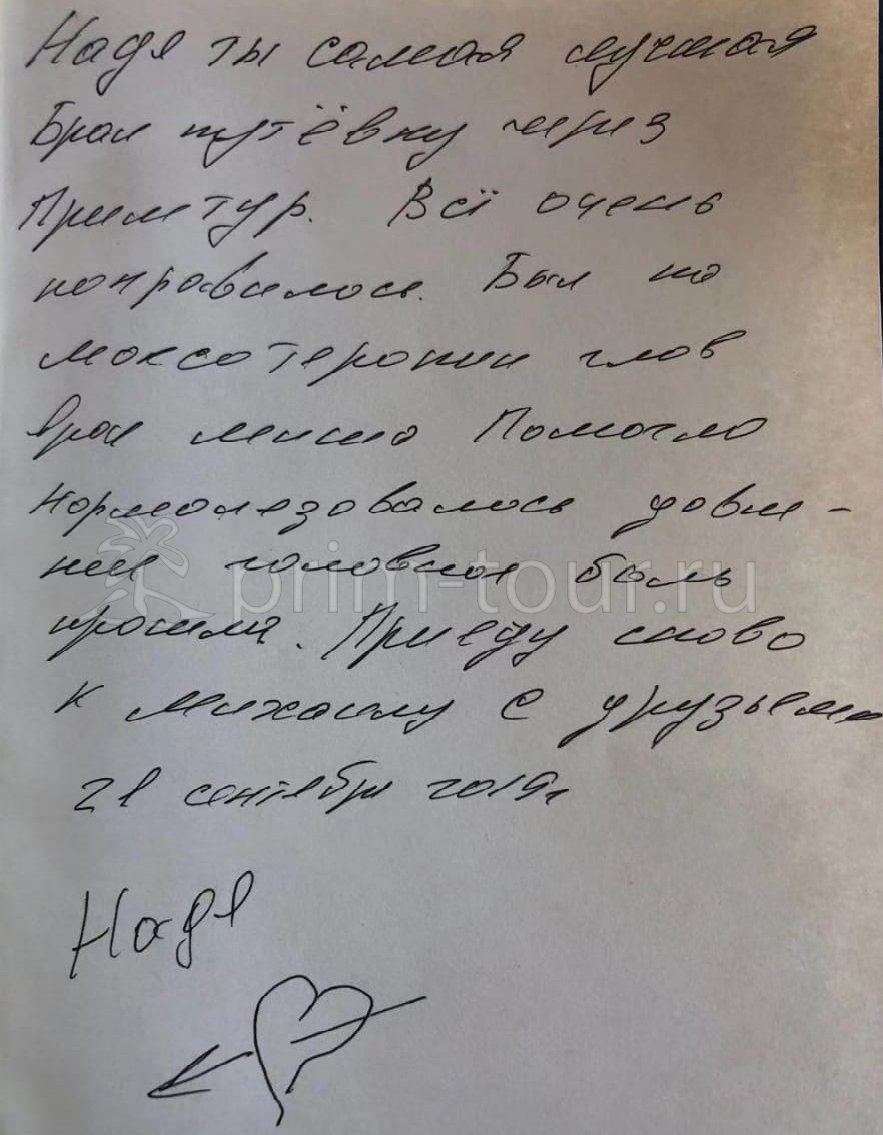 Надя ты самая лучшая
Брал путёвку через
Примтур. Всё очень
понравилось. Был на
моксотерапии глав
врач миша Помогло
нормолезовалось давле-
ние головная боль
прошла. Приеду снова
к михаилу с друзьями
21 сентября 2019г
Надя
prim-tour.ru